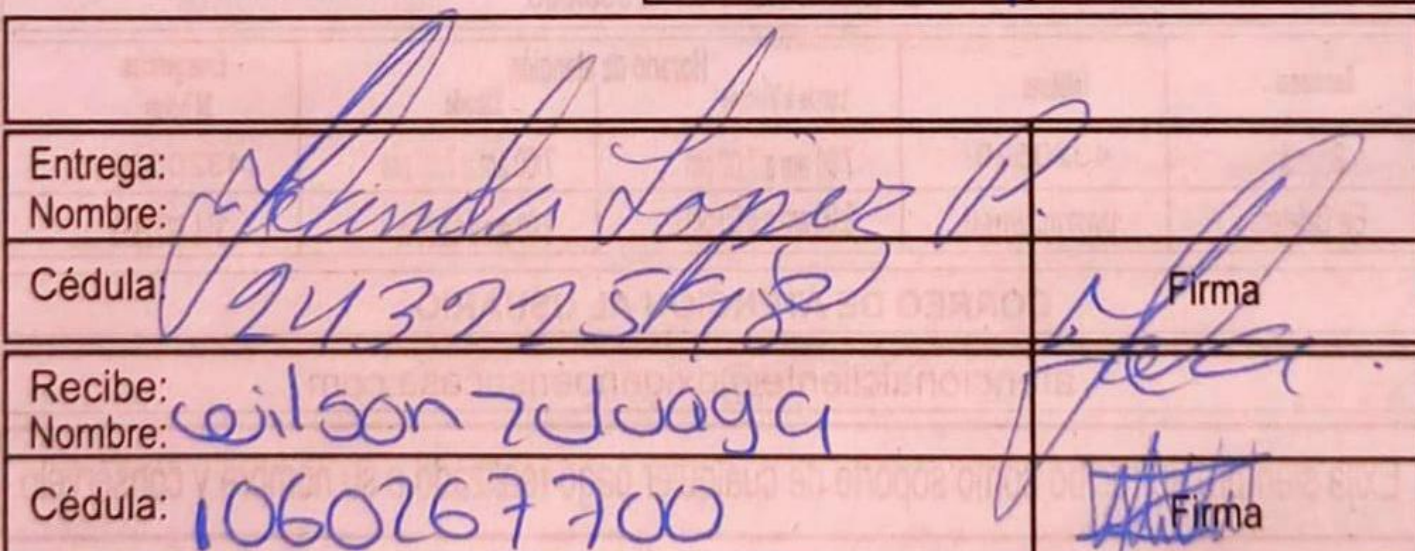 Entrega:
Nombre: Yolanda López P.
Cédula: 24322548
Firma
Recibe:
Nombre: wilson zuluaga
Cédula: 1060267700
Firma